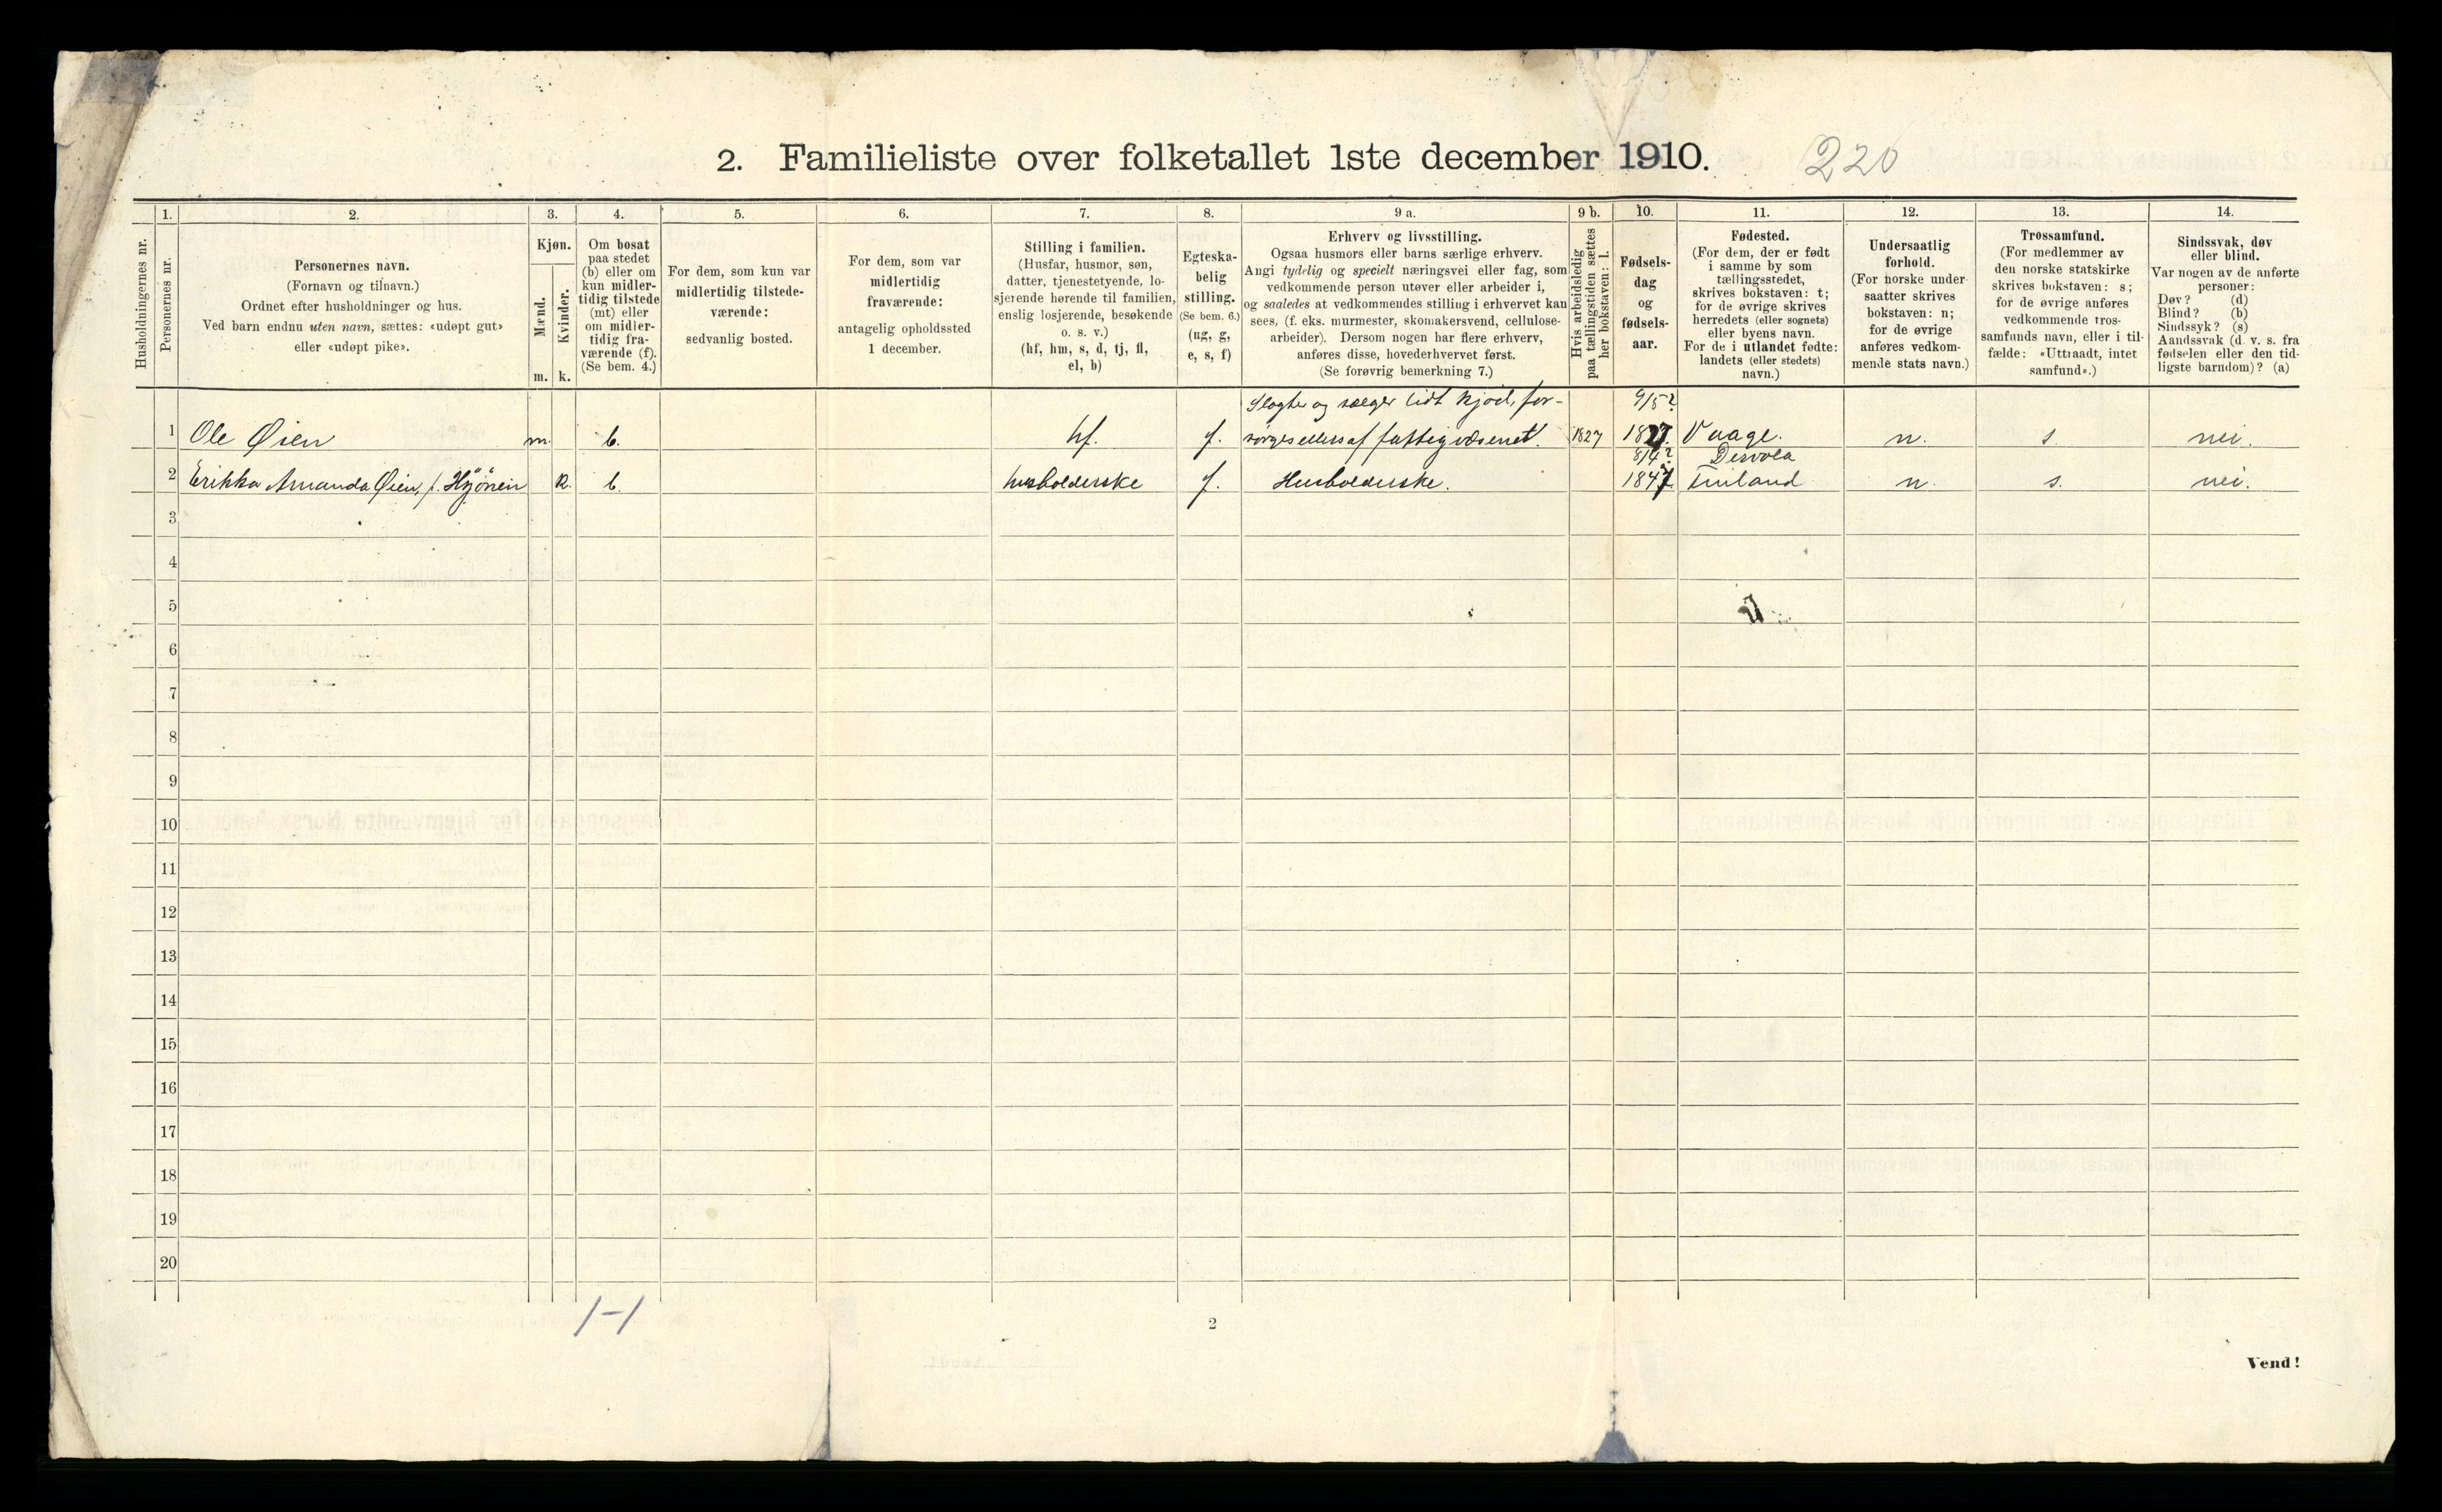 2. Familieliste over folketallet 1ste december 1910. 220
Husholdningernes nr.
1.
Personernes nr.
2.
Personernes navn.
(Fornavn og tilnavn.)
Ordnet efter husholdninger og hus.
Ved barn endnu uten navn, sættes: «udøpt gut»
eller «udøpt pike».
3.
Kjøn.
Mænd.
Kvinder.
m. k.
4.
Om bosat
paa stedet
(b) eller om
kun midler-
tidig tilstede
(mt) eller
om midler-
tidig fra-
værende (f).
(Se bem. 4.)
5.
For dem, som kun var
midlertidig tilstede-
værende:
sedvanlig bosted.
6.
For dem, som var
midlertidig
fraværende:
antagelig opholdssted
1 december.
7.
Stilling i familien.
(Husfar, husmor, søn,
datter, tjenestetyende, lo-
sjerende hørende til familien,
enslig losjerende, besøkende
o. s. v.)
(hf, hm, s, d, tj, fl,
el, b)
8.
Egteska-
belig
stilling.
(Se bem. 6.)
(ug, g,
e, s, f)
9 a.
Erhverv og livsstilling.
Ogsaa husmors eller barns særlige erhverv.
Angi tydelig og specielt næringsvei eller fag, som
vedkommende person utøver eller arbeider i,
og saaledes at vedkommendes stilling i erhvervet kan
sees, (f. eks. murmester, skomakersvend, cellulose-
arbeider). Dersom nogen har flere erhverv,
anføres disse, hovederhvervet først.
(Se forøvrig bemerkning 7.)
9 b.
Hvis arbeidsledig
paa tællingstiden sættes
her bokstaven: l.
10.
Fødsels-
dag
og
fødsels-
aar.
11.
Fødested.
(For dem, der er født
i samme by som
tællingsstedet,
skrives bokstaven: t;
for de øvrige skrives
herredets (eller sognets)
eller byens navn.
For de i utlandet fødte:
landets (eller stedets)
navn.)
12.
Undersaatlig
forhold.
(For norske under-
saatter skrives
bokstaven: n;
for de øvrige
anføres vedkom-
mende stats navn.)
13.
Trossamfund.
(For medlemmer av
den norske statskirke
skrives bokstaven: s;
for de øvrige anføres
vedkommende tros-
samfunds navn, eller i til-
fælde: «Uttraadt, intet
samfund».)
14.
Sindssvak, døv
eller blind.
Var nogen av de anførte
personer:
Døv? (d)
Blind? (b)
Sindssyk? (s)
Aandssvak (d. v. s. fra
fødselen eller den tid-
ligste barndom)? (a)
Slagter og sælger lidt kjød, for- 9/5?
1 Ole Øien m. b. hf. f. sørges ellers af fattigvæsenet. 1827 1827. Vaage. n. s. nei.
8/4? Dervola
2 Erikka Amanda Øien, f. Hÿönen k. b. husholderske f. Husholderske. 1847. Finland n. s. nei.
3
4
5
6
7
8
9
10
11
12
13
14
15
16
17
18
19
20
1-1
2
Vend!